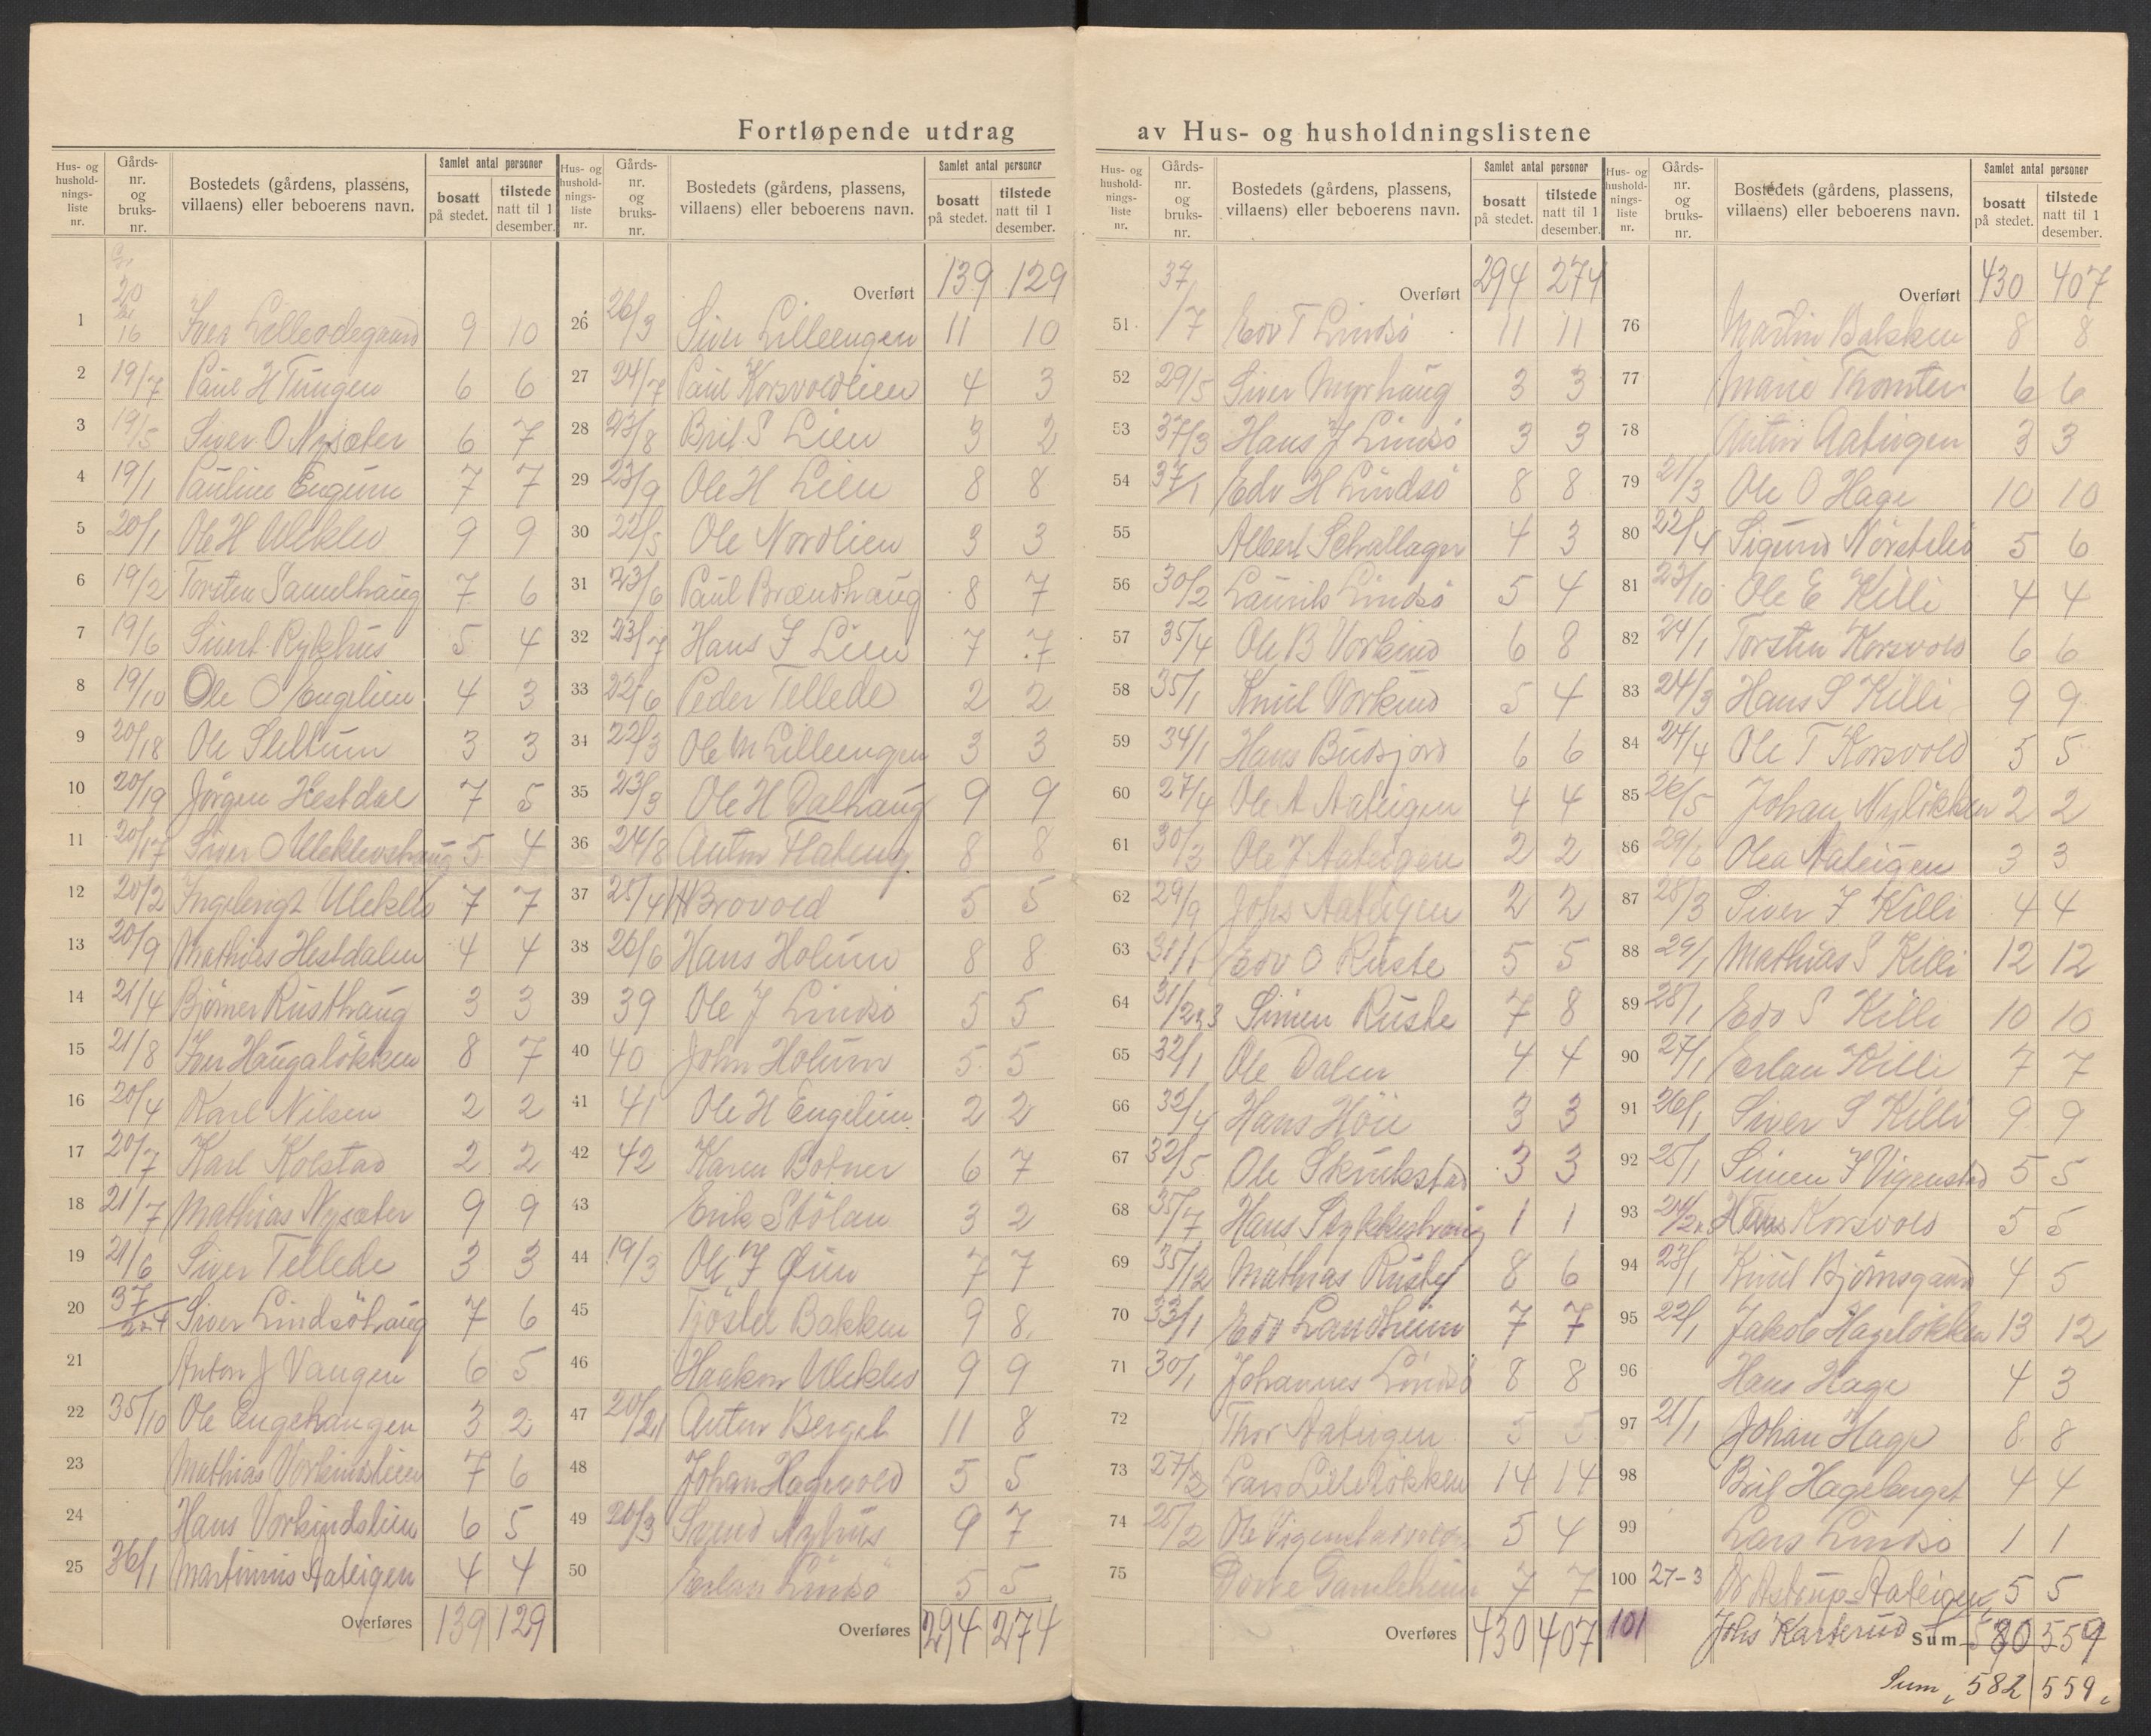 Fortløpende utdrag av Hus- og husholdningslistene
Hus- og husholdnings-liste nr. | Gårds-nr. og bruks-nr. | Bostedets (gårdens, plassens, villaens) eller beboerens navn. | Samlet antal personer | bosatt på stedet. | tilstede natt til 1 desember.
1 20/16 Iver Lilleødegaard 9 10
2 19/7 Paul H Tungen 6 6
3 19/5 Siver O Nysæter 6 7
4 19/1 Pauline Engum 7 7
5 20/1 Ole H Uleklev 9 9
6 19/2 Torsten Samelhaug 7 6
7 19/6 Sivert Rykhus 5 4
8 19/10 Ole O Engelien 4 3
9 20/18 Ole Slettum 3 3
10 20/19 Jørgen Hestdal 7 5
11 20/17 Siver O Uleklevshaug 5 4
12 20/2 Ingebrigt Uleklev 7 7
13 20/9 Mathias Hestdalen 4 4
14 21/4 Bjørner Rusthaug 3 3
15 21/8 Iver Haugaløkken 8 7
16 20/4 Karl Nilsen 2 2
17 20/7 Karl Kolstad 2 2
18 21/7 Mathias Nysæter 9 9
19 21/6 Siver Tellede 3 3
20 37/2+4 Siver Lindsöhaug 7 6
21 Anton J Vangen 6 5
22 35/10 Ole Engehaugen 3 2
23 Mathias Vorkinslien 7 6
24 Hans Vorkindslien 6 5
25 36/1 Martinius Aateigen 4 4
Overføres 139 129
Hus- og husholdnings-liste nr. | Gårds-nr. og bruks-nr. | Bostedets (gårdens, plassens, villaens) eller beboerens navn. | Samlet antal personer | bosatt på stedet. | tilstede natt til 1 desember.
Overført 139 129
26 26/3 Siver Lilleengen 11 10
27 24/7 Paul Korsvoldlien 4 3
28 23/8 Brit S Lien 3 2
29 23/9 Ole H Lien 8 8
30 22/5 Ole Nordlien 3 3
31 23/6 Paul Brændhaug 8 7
32 23/7 Hans I Lien 7 7
33 22/6 Peder Tellede 2 2
34 22/3 Ole M Lilleengen 3 3
35 23/3 Ole H Dalhaug 9 9
36 24/8 Anton Flateng 8 8
37 25/4 H Brovold 5 5
38 26/6 Hans Holum 8 8
39 39 Ole J Lindsö 5 5
40 40 John Holum 5 5
41 41 Ole H Engelien 2 2
42 42 Karen Botner 6 7
43 Erik Stölan 3 2
44 19/3 Ole I Øien 7 7
45 Tjöstel Bakken 9 8
46 Haakon Uleklev 9 9
47 20/21 Anton Berget 11 8
48 Johan Hagevold 5 5
49 20/3 Svend Nyhus 9 7
50 Erlan Lindsö 5 5
Overføres 294 274
Hus- og husholdnings-liste nr. | Gårds-nr. og bruks-nr. | Bostedets (gårdens, plassens, villaens) eller beboerens navn. | Samlet antal personer | bosatt på stedet. | tilstede natt til 1 desember.
Overført 294 274
51 37/7 Edv T Lindsö 11 11
52 29/5 Siver Myrhaug 3 3
53 37/3 Hans J Lindsö 3 3
54 37/1 Edv H Lindsö 8 8
55 Albert Schallager 4 3
56 30/2 Laurits Lindsö 5 4
57 35/4 Ole B Vorkind 6 8
58 35/1 Knut Vorkind 5 4
59 34/1 Hans Budsjord 6 6
60 27/4 Ole A Aateigen 4 4
61 30/3 Ole J Aateigen 2 2
62 29/9 Johs Aateigen 2 2
63 31/1 Edv O Ruste 5 5
64 31/2,3 Simen Ruste 7 8
65 32/1 Ole Dalen 4 4
66 32/4 Hans Höie 3 3
67 32/5 Ole Skrukstad 3 3
68 35/7 Hans Stykkeshaug 1 1
69 35/12 Mathias Rusty 8 6
70 33/1 Edv Landheim 7 7
71 30/1 Johannes Lindsö 8 8
72 Thor Aateigen 5 5
73 27/2 Lars Lilleløkken 14 14
74 25/2 Ole Vigenstadvold 5 4
75 Dorte Gamleheim 7 7
Overføres 430 407
Hus- og husholdnings-liste nr. | Gårds-nr. og bruks-nr. | Bostedets (gårdens, plassens, villaens) eller beboerens navn. | Samlet antal personer | bosatt på stedet. | tilstede natt til 1 desember.
Overført 430 407
76 Martin Bakken 8 8
77 Marie Thomter 6 6
78 Anton Aateigen 3 3
79 21/3 Ole O Hage 10 10
80 22/4 Sigurd Nörstelid 5 6
81 23/10 Ole E Killi 4 4
82 24/1 Torsten Korsvold 6 6
83 24/3 Hans S Killi 9 9
84 24/4 Ole T Korsvold 5 5
85 26/5 Johan Nyløkken 2 2
86 29/6 Olea Aateigen 3 3
87 28/3 Siver I Killi 4 4
88 29/1 Mathias S Killi 12 12
89 28/1 Edv S Killi 10 10
90 27/1 Erlan Killi 7 7
91 26/1 Siver S Killi 9 9
92 25/1 Simen I Vigenstad 5 5
93 24/2 Hans Korsvold 5 5
94 23/1 Knut Bjørnsgaard 4 5
95 22/1 Jakob Hageløkken 13 12
96 Hans Hage 4 3
97 21/1 Johan Hage 8 8
98 Brit Hageberget 4 4
99 Lars Lindsö 1 1
100 27-3 Astrup Aateigen 5 5
101 Johs Karterud
Sum 580 559
Sum, 582 559,